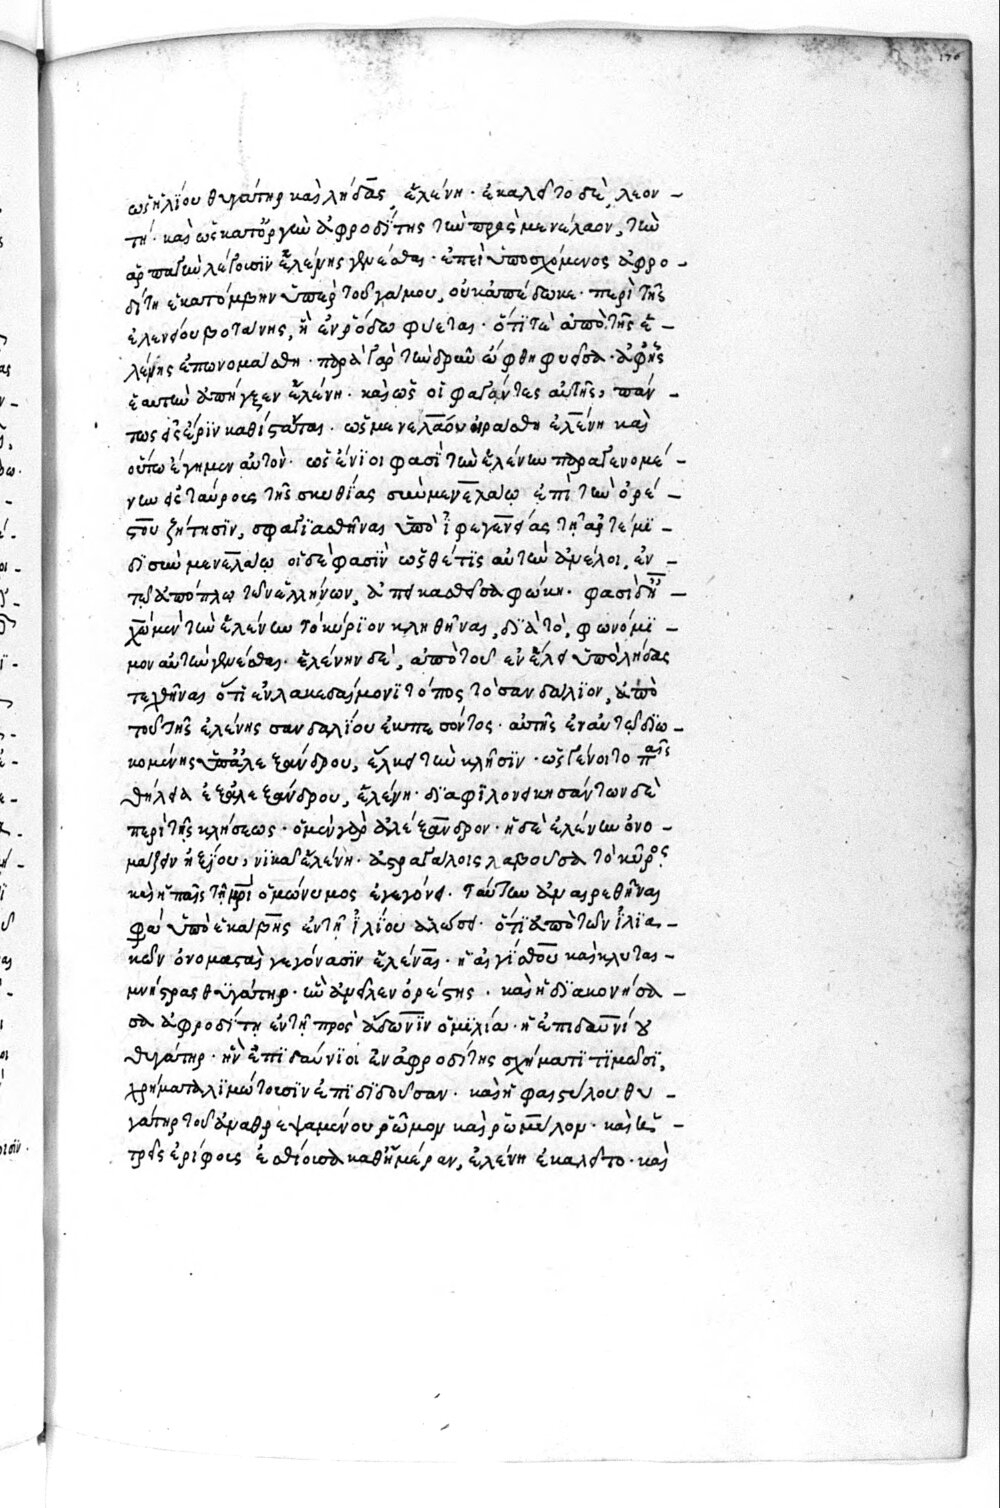 ὡς ἡλίου θυγάτηρ καὶ λήδας, ἑλένη· ἐκαλεῖτο δὲ, λεον -
τή· καὶ ὡς κατ' ὀργὴν ἀφροδίτης τὴν πρὸς μενέλαον, τὴν
ἁρπαγὴν λέγουσιν ἑλένης γενέσθαι· ἐπεὶ ὑποσχόμενος ἀφρο -
δίτη ἑκατόμβην ὑπὲρ τοῦ γάμου, οὐκ ἀπέδωκε· περὶ τῆς
ἑλενείου βοτάνης, ἣ ἐν ῥόδω φύεται· ὅτι τὲ ἀπὸ τῆς ἑ -
λένης ἐπωνομάσθη· παρὰ γὰρ τὴν δρῦν ὤφθη φυεῖσα· ἀφ' ἧς
ἑαυτὴν ἀπήγξεν ἑλένη· καὶ ὡς οἱ φαγόντες αὐτῆς, πάν -
τως εἰς ἔριν καθίστανται· ὡς μενελάου ἠράσθη ἑλένη καὶ
οὕτω ἔγημεν αὐτόν· ὡς ἔνιοι φασὶ τὴν ἑλένην παραγενομέ -
νην εἰς ταύρους τῆς σκυθίας σὺν μενελάω ἐπὶ τὴν ὀρέ -
στου ζήτησιν, σφαγιασθῆναι ὑπὸ ἰφιγενείας τῆ ἀρτέμι -
δι σὺν μενελάω οἱ δὲ φασὶν ὡς θέτις αὐτὴν ἀνέλοι, ἐν -
τῶ ἀπόπλω τῶν ἑλλήνων, ἀπεικασθεῖσα φώκη· φασὶ δὴ -
τὴν ἑλένην τὸ κύριον κληθῆναι, διὰ τὸ, φωνόμι -
μον αὐτὴν γενέσθαι· ἑλένην δὲ, ἀπὸ τοῦ ἐν ἕλει ὑπὸ λήδας
τεχθῆναι ὅτι ἐν λακεδαίμονι τόπος τὸ σανδάλιον, ἀπὸ
τοῦ τῆς ἑλένης σανδαλίου ἐκπεσόντος· αὐτῆς ἐν αὐτῶ διω -
κομένης ὑπ' ἀλεξάνδρου, ἕλκει τὴν κλῆσιν· ὡς γένοιτο παῖς
θήλεια ἐξ ἀλεξάνδρου, ἑλένη· διαφιλονεικησάντων δὲ
περὶ τῆς κλήσεως· ὁ μὲν γὰρ ἀλέξανδρον· ἡ δὲ ἑλένην ὀνο -
μάζειν ἠξίου, νικᾶ ἑλένη· ἀστραγάλοις λαβοῦσα τὸ κῦρος
καὶ ἡ παῖς τῆ μητρὶ ὁμώνυμος ἐγεγόνει· ταύτην ἀναιρεθῆναι
φασὶν ὑπὸ ἑκάβης ἐν τῆ ἰλίου ἁλώσει· ὅτι ἀπὸ τῶν ἰλια -
κῶν ὀνομασταὶ γεγόνασιν ἑλέναι· ἡ αἰγίσθου καὶ κλυται -
μνήστρας θυγάτηρ· ἣν ἀνεῖλεν ὀρέστης· καὶ ἡ διακονήσα -
σα ἀφροδίτη ἐν τῆ πρὸς ἄδωνιν ὁμιλία· ἡ ἐπιδαυνίου
θυγάτηρ· ἣν ἐπιδαύνιοι ἐν ἀφροδίτης σχήματι τιμῶσι,
χρήματα λιμώττουσιν ἐπιδιδοῦσαν· καὶ ἡ φαιστύλου θυ -
γάτηρ τοῦ ἀναθρεψαμένου ῥῶμον καὶ ῥωμύλον· καὶ ἡ -
τρεῖς ἐρίφους ἐσθίουσα καθ' ἡμέραν, ἑλένη ἐκαλεῖτο· καὶ